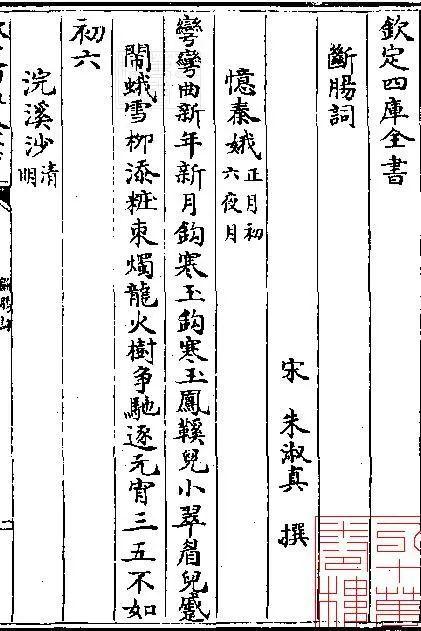 欽定四庫全書
斷腸詞
宋 朱淑真 撰
憶秦娥 正月初六夜月
彎彎曲新年新月鈎寒玉鈎寒玉鳳鞵兒小翠眉兒蹙
鬧蛾雪柳添粧束燭龍火樹爭馳逐元宵三五不如
初六
浣溪沙 清明